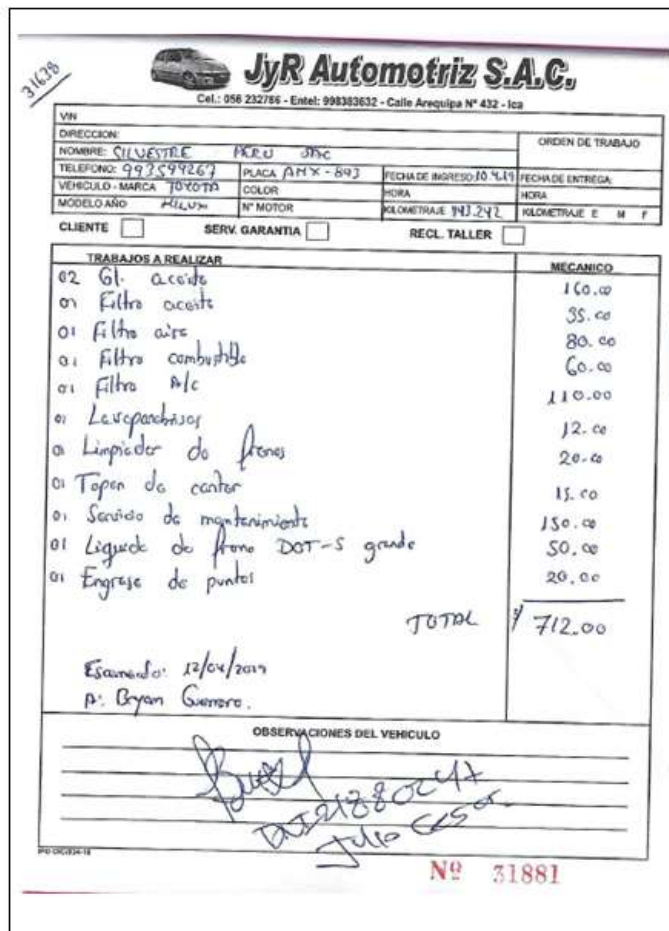 31638
JyR Automotriz S.A.C.
Cel.: 056 232786 - Entel: 998383632 - Calle Arequipa Nº 432 - Ica
VIN
DIRECCION:
ORDEN DE TRABAJO
NOMBRE: SILVESTRE PERU SAC
TELEFONO: 993599267 PLACA AHX-893 FECHA DE INGRESO: 10.4.19 FECHA DE ENTREGA:
VEHICULO - MARCA TOYOTA COLOR HORA HORA
MODELO AÑO HILUX Nº MOTOR KILOMETRAJE 143.242 KILOMETRAJE E M F
CLIENTE SERV. GARANTIA RECL. TALLER
TRABAJOS A REALIZAR MECANICO
02 Gl. aceite 160.00
01 Filtro aceite 35.00
01 Filtro aire 80.00
01 Filtro combustible 60.00
01 Filtro A/c 110.00
01 Lavaparabrisas 12.00
01 Limpiador de frenos 20.00
01 Tapon de carter 15.00
01 Servicio de mantenimiento 150.00
01 Liquido de freno DOT-5 grande 50.00
01 Engrase de puntos 20.00
TOTAL 712.00
Escaneado: 12/04/2019
A: Bryan Guerrero.
OBSERVACIONES DEL VEHICULO
Julio Cesar
Nº 31881